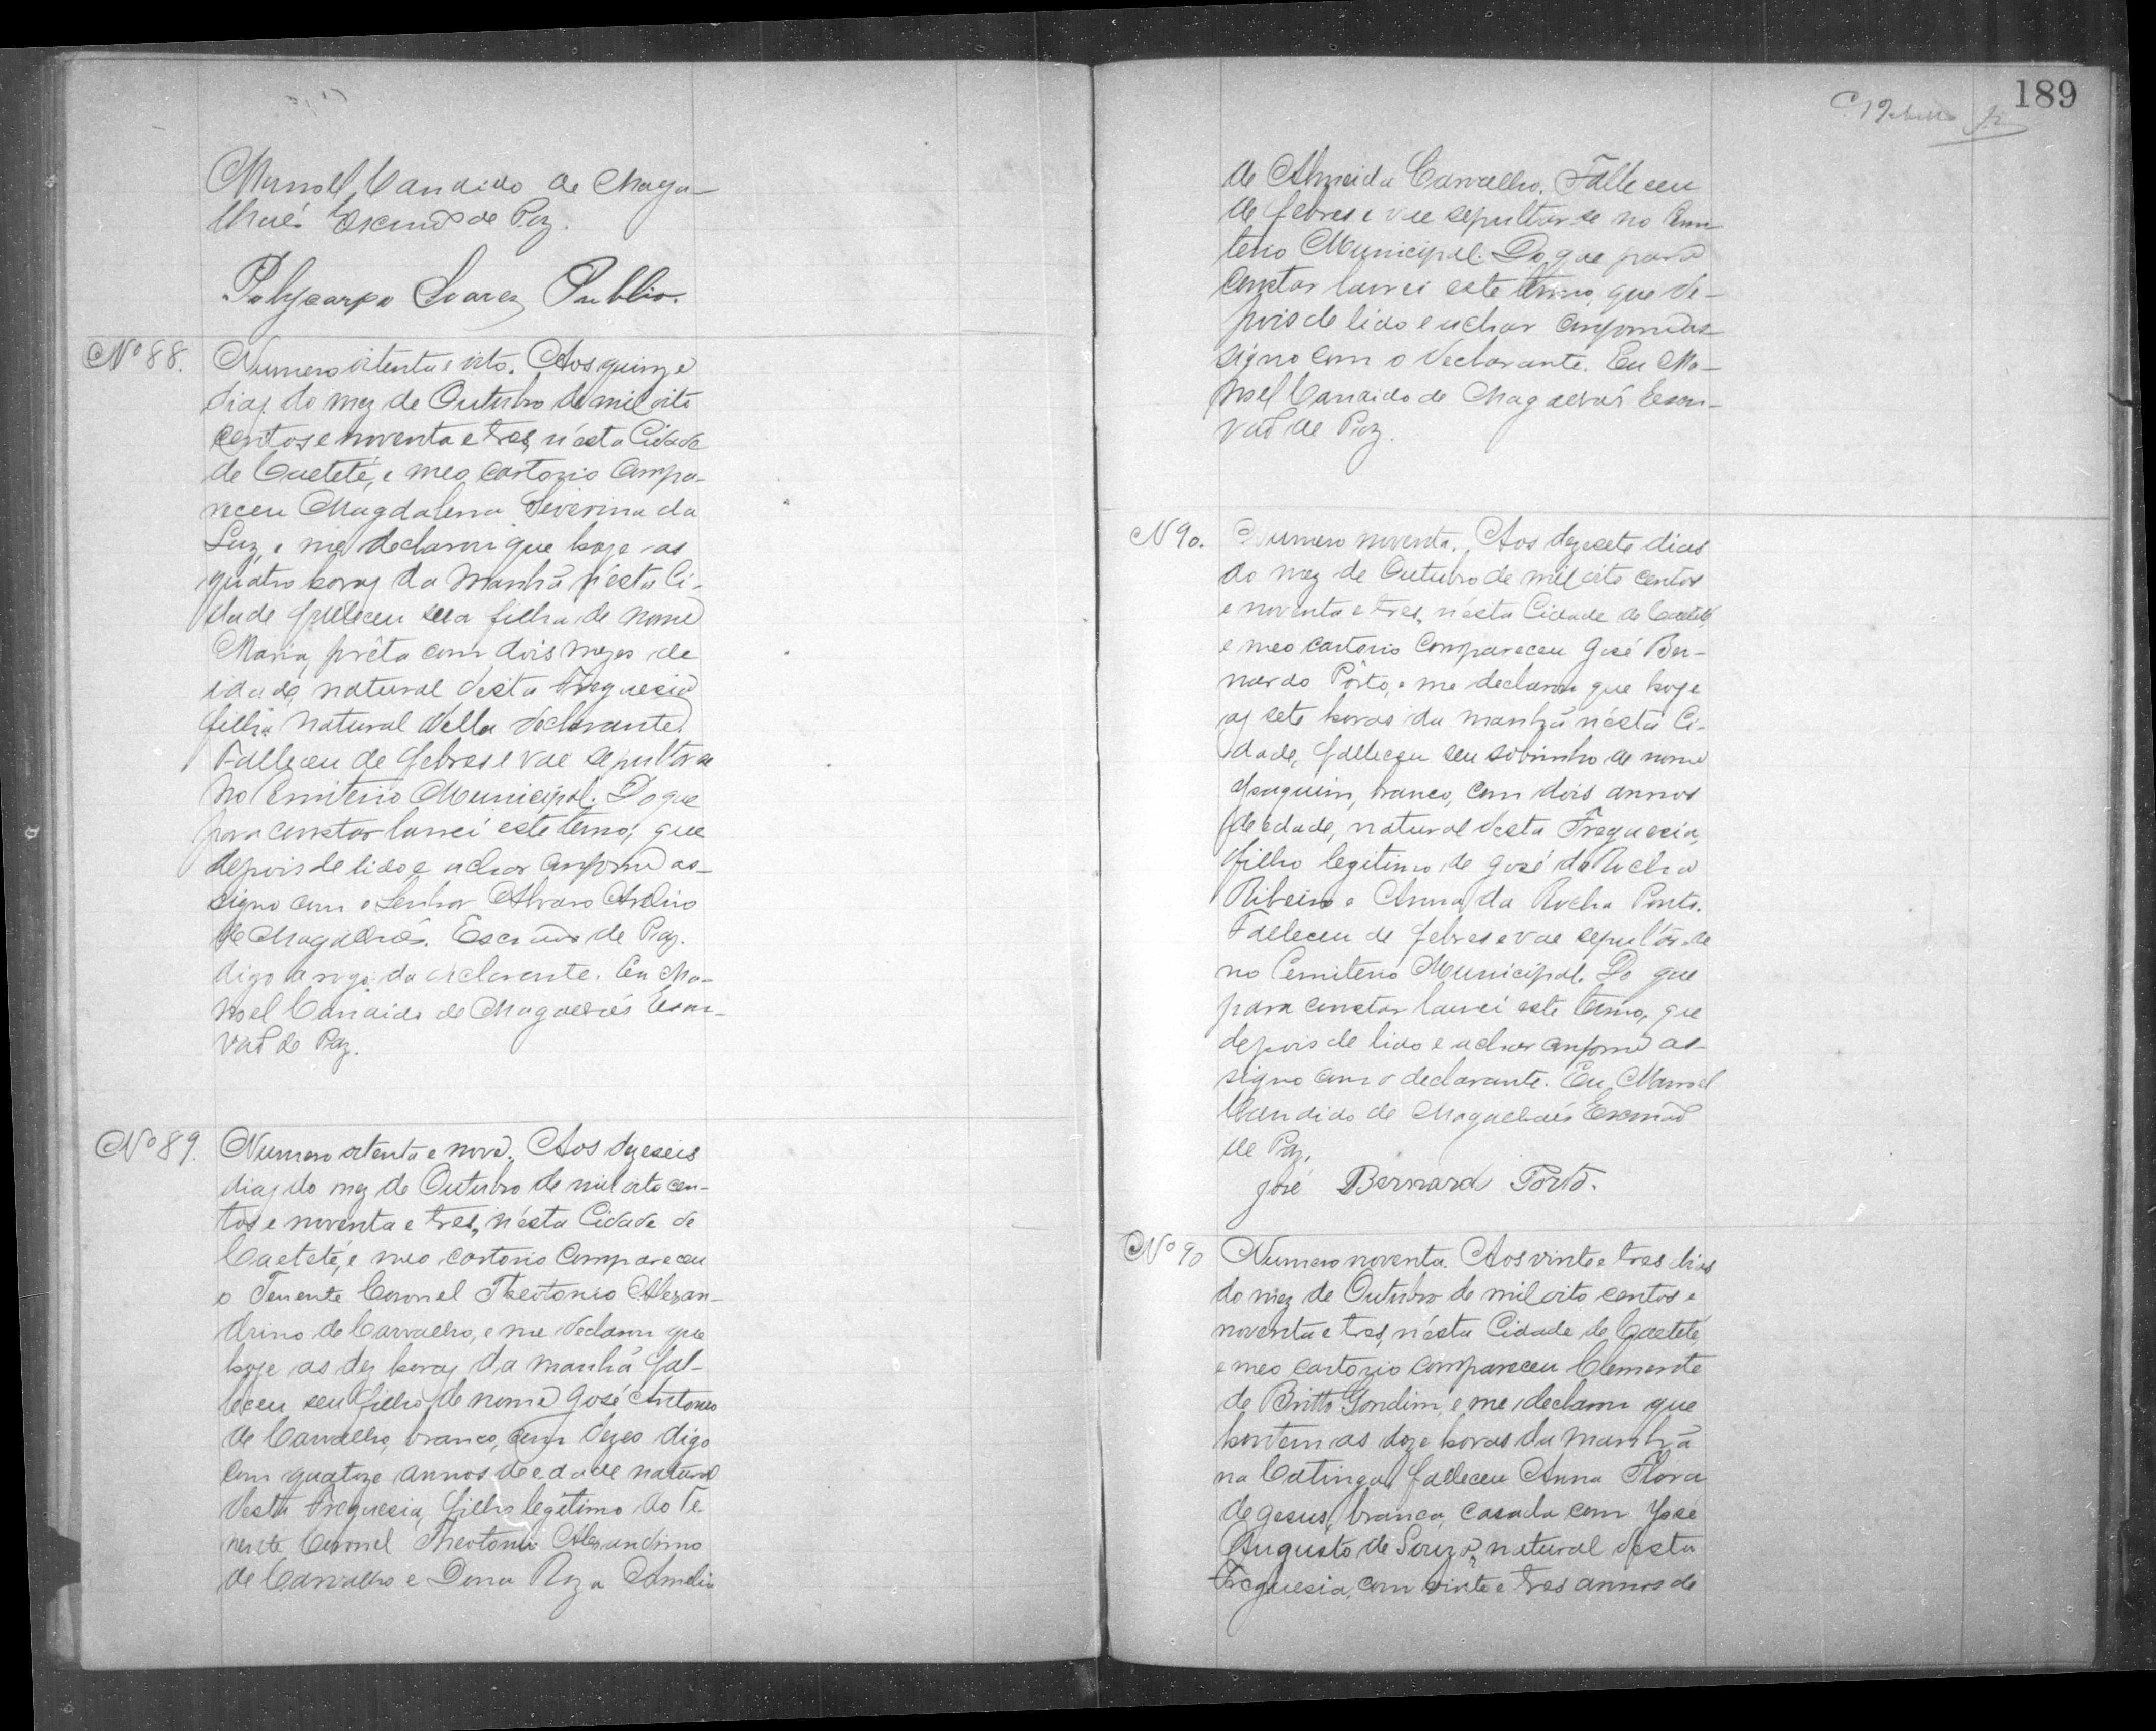 Manoel Candido de Maga-
lhaẽs Escrivaõ de Paz.
Polycarpo Soares Publio.
Nº 88.
Numero oitenta e oito. Aos quinze
dias do mez de Outubro de mil oito
centos e noventa e tres, n'esta Cidade
de Caeteté, e meo cartorio compa-
receu Magdalena Severina da
Luz, e me declarou que hoje as
quatro horas da manhã n'esta Ci-
dade falleceu sua filha de nome
Maria, prêta com dois mezes de
idade, natural desta Freguesia
filha natural della declarante.
Falleceu de febres e vae sepultar se
no Cemiterio Municipal. Do que
para constar lavrei este termo, que
depois de lido e achar conforme as-
signo com o Senhor Alvaro Avelino
de Magalhães. Escrivaõ de Paz.
digo a rogo da declarante. Eu Ma-
noel Candido de Magalhaẽs Escri-
vaõ de Paz.
Nº 89.
Numero oitenta e nove. Aos dezeseis
dias do mez de Outubro de mil oito cen-
tos e noventa e tres, n'esta Cidade de
Caeteté, e meo cartorio compareceu
o Tenente Coronel Theotonio Alexan-
drino de Carvalho, e me declarou que
hoje as dez horas da manhã fal-
leceu seu filho de nome José Antonio
de Carvalho, branco, com dezeo digo
com quatoze annos de edade natural
desta Freguesia, filho legitimo do Te-
nente Coronel Theotonio Alexandrino
de Carvalho e Dona Roza Amelia
189
de Almeida Carvalho. Falleceu
de febres e vae sepultar se no Cemi-
terio Municipal. Do que para
constar lavrei este termo, que de-
pois de lido e achar conforme as-
signo com o declarante. Eu Ma-
noel Candido de Magalhaẽs Escri-
vaõ de Paz.
N 90.
Numero noventa. Aos dezesete dias
do mez de Outubro de mil oito centos
e noventa e tres, n'esta Cidade de Caeteté,
e meo cartorio compareceu José Ber-
nardo Pôrto, e me declarou que hoje
as sete horas da manhã n'esta Ci-
dade, falleceu seu sobrinho de nome
Joaquim, branco, com dois annos
de edade, natural desta Freguesia,
filho legitimo de José da Rocha
Ribeiro e Anna da Rocha Porto.
Falleceu de febres e vae sepultar se
no Cemiterio Municipal. Do que
para constar lavrei este termo, que
depois de lido e achar conforme as-
signo com o declarante. Eu, Manoel
Candido de Magalhaẽs Escrivaõ
de Paz.
José Bernard Porto.
Nº 90
Numero noventa. Aos vinte e tres dias
do mez de Outubro de mil oito centos e
noventa e tres, n'esta Cidade de Caeteté
e meo cartorio compareceu Clemente
de Britto Gondim, e me declarou que
hontem as doze horas da manhã
na Catinga, falleceu Anna Flora
de Jesus, branca, casada com José
Augusto de Souza, natural desta
Freguesia, com vinte e tres annos de